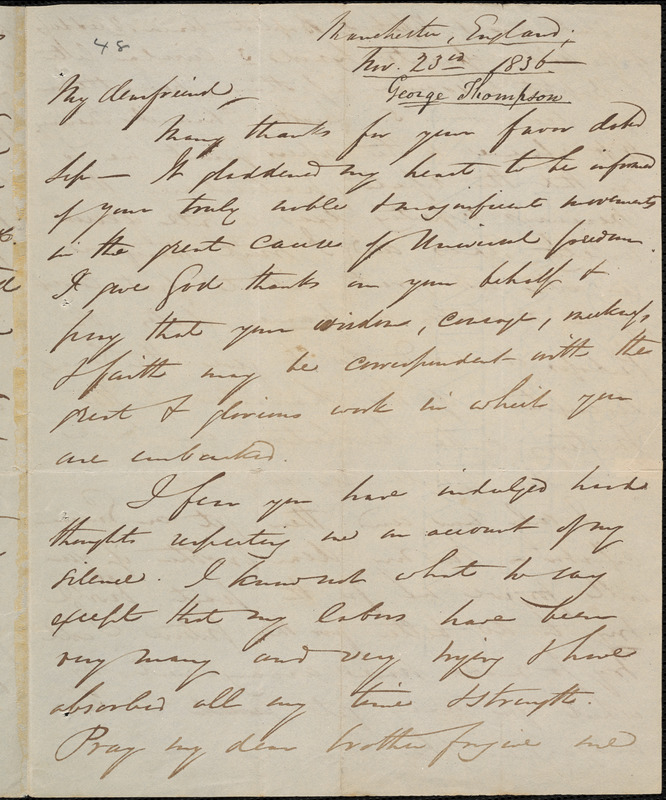 48
Manchester, England;
Nov. 23rd 1836
George Thompson
My dear friend,
Many thanks for your favor dated
Sep— It gladdened my heart to be informed
of your truly noble & magnificent movements
in the great cause of Universal freedom.
I give God thanks on your behalf &
pray that your wisdom, courage, meekness
& faith may be correspondent with the
great & glorious work in which you
are embarked.
I fear you have indulged hard
thoughts respecting me on account of my
silence. I know not what to say
except that my labors have been
very many and very trying & have
absorbed all my time & strength.
Pray my dear brother forgive me